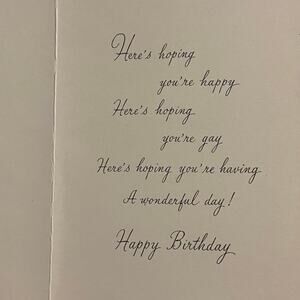 Here's hoping
you're happy
Here's hoping
you're gay
Here's hoping you're having
A wonderful day!
Happy Birthday